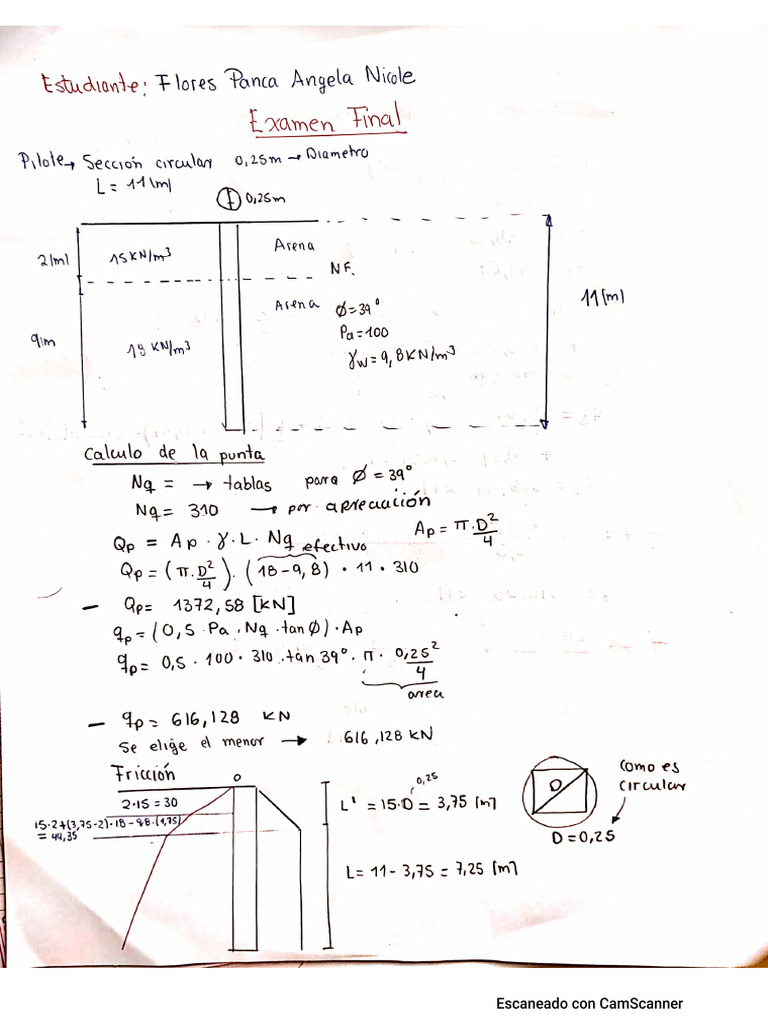 Estudiante: Flores Panca Angela Nicole
Examen Final
Pilote → Sección circular 0,25m → Diametro
L = 11[m]
0,25m
2[m] 15 KN/m³ Arena
N.F.
Arena φ=39°
11[m]
9[m 18 KN/m³ Pa=100
γw=9,8KN/m³
Calculo de la punta
Nq = → tablas para φ = 39°
Nq = 310 → por apreciación
Qp = Ap · γ · L · Nq Ap = π·D²/4
efectivo
Qp = (π·D²/4)·(18-9,8) · 11 · 310
- Qp= 1372,58 [KN]
qp = (0,5 · Pa · Nq · tan φ) · Ap
qp = 0,5 · 100 · 310 · tan 39° · π · 0,25²/4
area
- qp = 616,128 KN
Se elige el menor → 616,128 KN
Fricción
0
2·15 = 30
15·2+(3,75-2)·18-9,8·(1,75)
= 44,35
0,25
L' = 15·D = 3,75 [m]
L = 11 - 3,75 = 7,25 [m]
D
como es
circular
D = 0,25
Escaneado con CamScanner